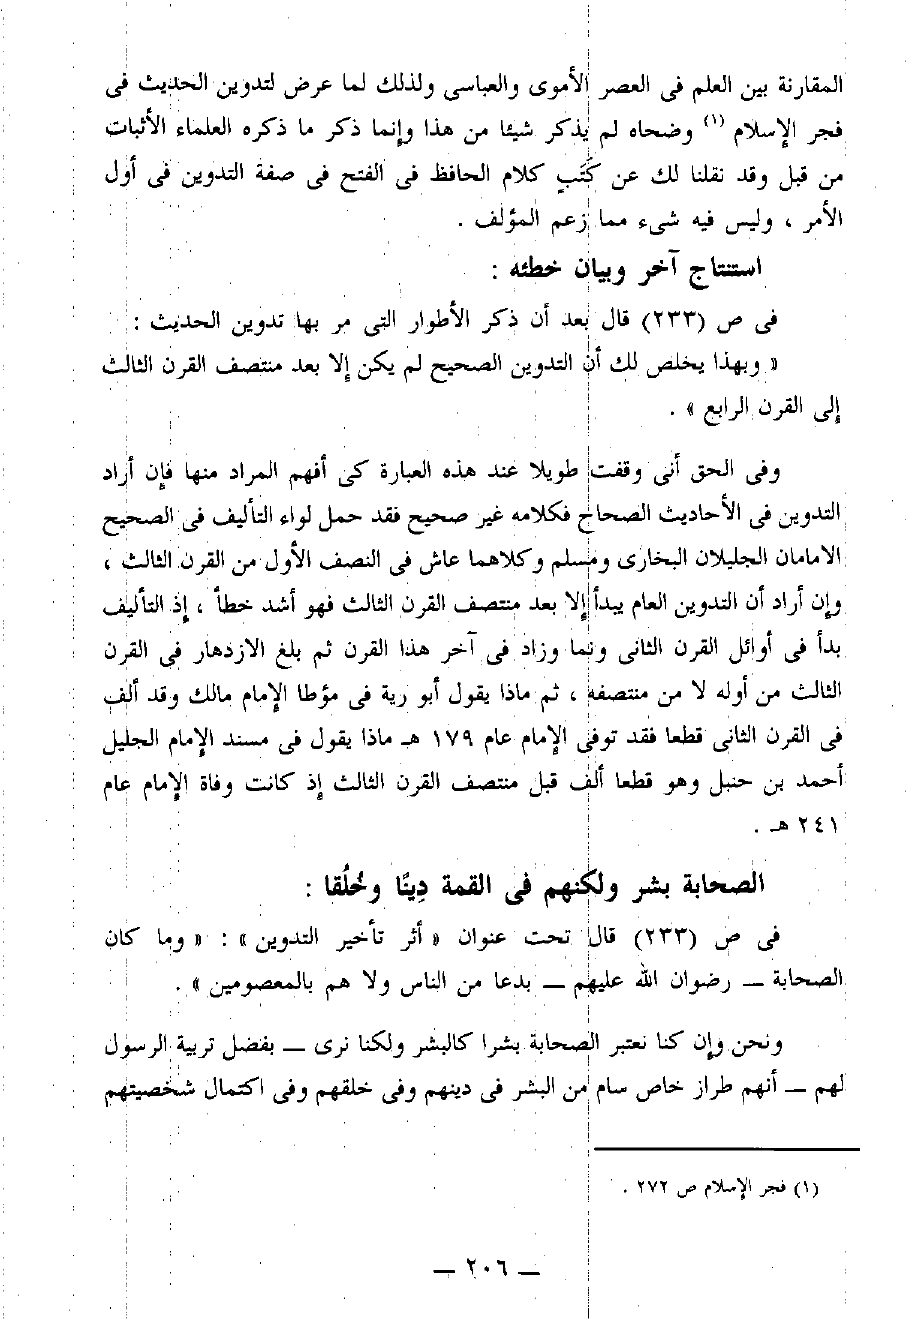 المقارنة بين العلم فى العصر الأموى والعباسى ولذلك لما عرض لتدوين الحديث فى
فجر الإسلام (١) وضحاه لم يذكر شيئا من هذا وإنما ذكر ما ذكره العلماء الأثبات
من قبل وقد نقلنا لك عن كَتَبٍ كلام الحافظ فى الفتح فى صفة التدوين فى أول
الأمر ، وليس فيه شىء مما زعم المؤلف .
استنتاج آخر وبيان خطئه :
فى ص (٢٣٣) قال بعد أن ذكر الأطوار التى مر بها تدوين الحديث :
« وبهذا يخلص لك أن التدوين الصحيح لم يكن إلا بعد منتصف القرن الثالث
إلى القرن الرابع » .
وفى الحق أنى وقفت طويلا عند هذه العبارة كى أفهم المراد منها فإن أراد
التدوين فى الأحاديث الصحاح فكلامه غير صحيح فقد حمل لواء التأليف فى الصحيح
الامامان الجليلان البخارى ومسلم وكلاهما عاش فى النصف الأول من القرن الثالث ،
وإن أراد أن التدوين العام يبدأ إلا بعد منتصف القرن الثالث فهو أشد خطأ ، إذ التأليف
بدأ فى أوائل القرن الثانى ونما وزاد فى آخر هذا القرن ثم بلغ الازدهار فى القرن
الثالث من أوله لا من منتصفه ، ثم ماذا يقول أبو رية فى مؤطا الإمام مالك وقد ألف
فى القرن الثانى قطعا فقد توفى الإمام عام ١٧٩ هـ ماذا يقول فى مسند الإمام الجليل
أحمد بن حنبل وهو قطعا ألف قبل منتصف القرن الثالث إذ كانت وفاة الإمام عام
٢٤١ هـ .
الصحابة بشر ولكنهم فى القمة دِينًا وخُلُقا :
فى ص (٢٣٣) قال تحت عنوان « أثر تأخير التدوين » : « وما كان
الصحابة ــ رضوان الله عليهم ــ بدعا من الناس ولا هم بالمعصومين » .
ونحن وإن كنا نعتبر الصحابة بشرا كالبشر ولكنا نرى ــ بفضل تربية الرسول
لهم ــ أنهم طراز خاص سام من البشر فى دينهم وفى خلقهم وفى اكتمال شخصيتهم
(١) فجر الإسلام ص ٢٧٢ .
ــ ٢٠٦ ــ